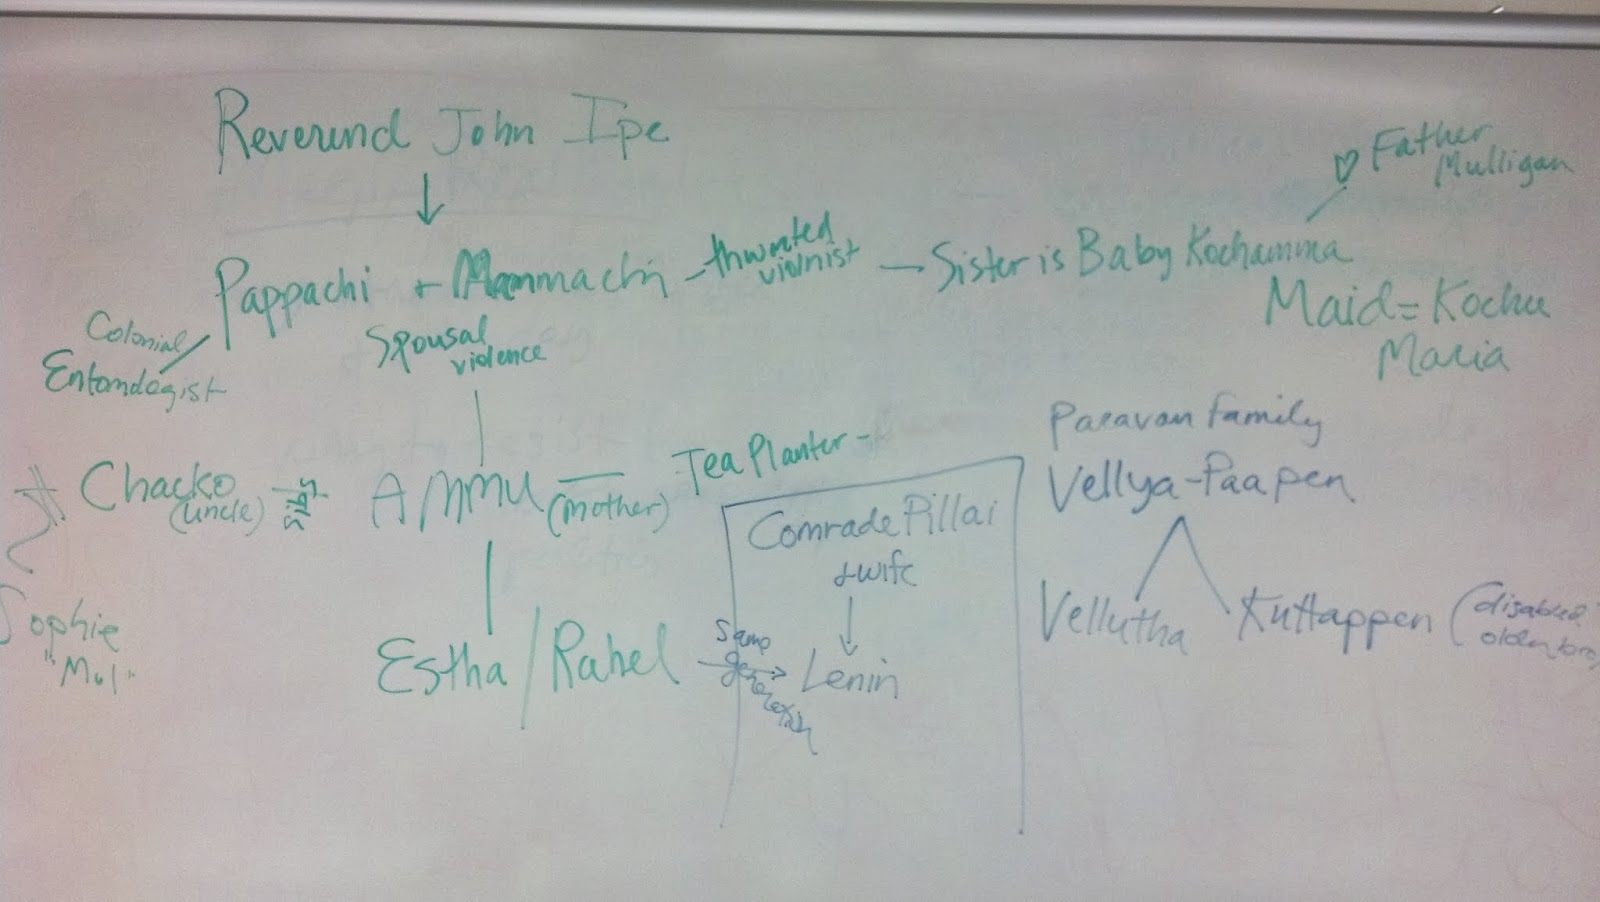 Reverend John Ipe
♡ Father
Mulligan
Pappachi + Mammachi - thwarted
violnist — Sister is Baby Kochamma
Maid = Kochu
Maria
Colonial
Entomologist
Spousal
violence
Paravan family
Vellya-Paapen
Chacko
(uncle)
AMMU
(mother)
Tea Planter -
Comrade Pillai
+ wife
Sophie
"Mol"
Estha / Rahel
same
generation
Lenin
Vellutha
Kuttappen (disabled
older bro)